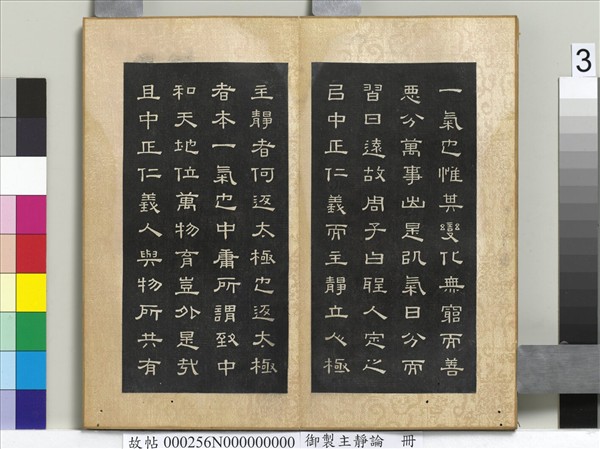 一氣也惟其變化無窮而善
惡分萬事出是㕥氣日分而
習日遠故周子曰聖人定之
㠯中正仁義而主靜立人極
主靜者何返太極也返太極
者本一氣也中庸所謂致中
和天地位萬物育豈外是哉
且中正仁義人與物所共有
3
故帖 000256N000000000 御製主靜論 冊